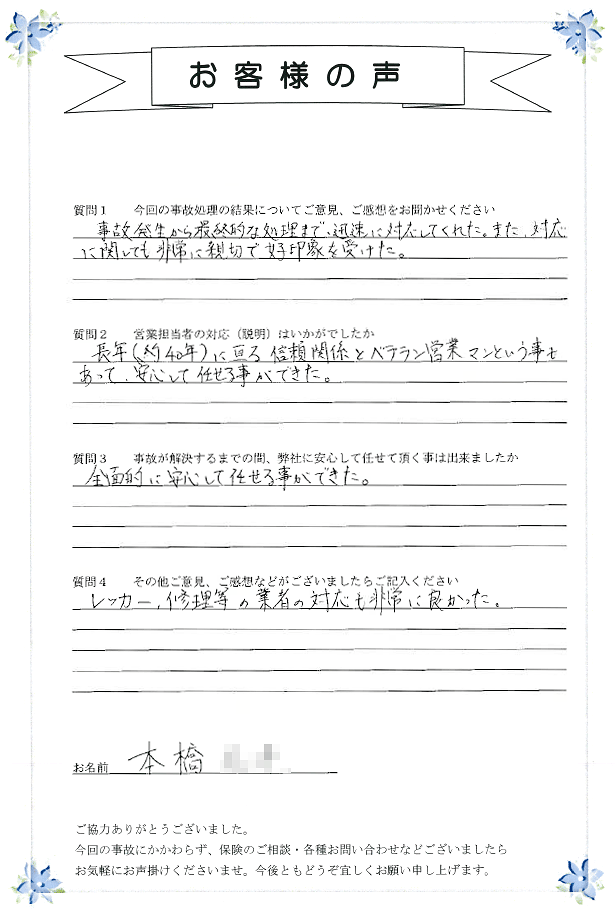 お客様の声
質問１　今回の事故処理の結果についてご意見、ご感想をお聞かせください
事故発生から最終的な処理まで、迅速に対応してくれた。また、対応
に関しても非常に親切で好印象を受けた。
質問２　営業担当者の対応（説明）はいかがでしたか
長年（約40年）に亘る信頼関係とベテラン営業マンという事も
あって、安心して任せる事ができた。
質問３　事故が解決するまでの間、弊社に安心して任せて頂く事は出来ましたか
全面的に安心して任せる事ができた。
質問４　その他ご意見、ご感想などがございましたらご記入ください
レッカー、修理等の業者の対応も非常に良かった。
お名前　本橋
ご協力ありがとうございました。
今回の事故にかかわらず、保険のご相談・各種お問い合わせなどございましたら
お気軽にお声掛けくださいませ。今後ともどうぞ宜しくお願い申し上げます。